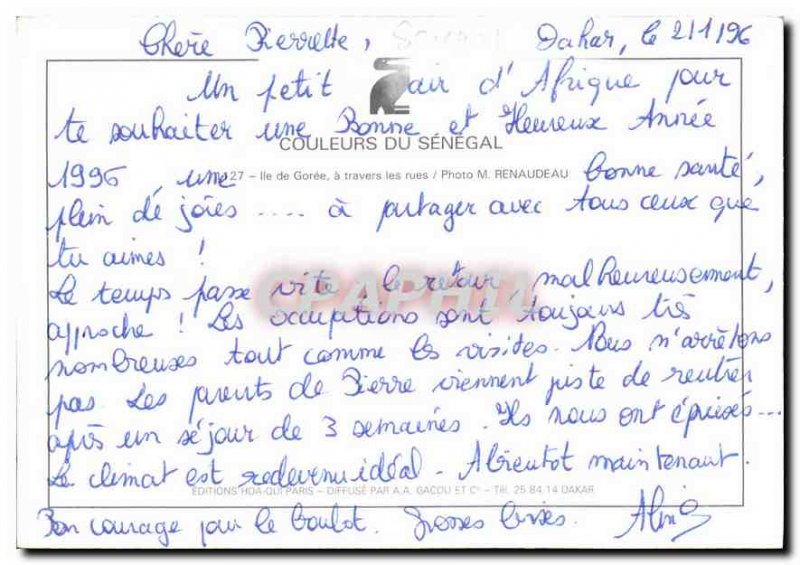 Chère Pierrette, Dakar, le 2/1/96
Un petit air d'Afrique pour
te souhaiter une Bonne et Heureux Année
COULEURS DU SÉNÉGAL
1996, une bonne santé,
27 – Ile de Gorée, à travers les rues / Photo M. RENAUDEAU
plein de joies .... à partager avec tous ceux que
tu aimes !
Le temps passe vite, le retour, malheureusement,
approche ! Les occupations sont toujours très
nombreuses tout comme les visites. Nous n'arrêtons
pas. Les parents de Pierre viennent juste de rentrer
après un séjour de 3 semaines. Ils nous ont épuisés...
Le climat est redevenu idéal - A bientot maintenant.
EDITIONS HOA-QUI PARIS – DIFFUSÉ PAR A.A. GACOU ET Cie – Tél. 25.84.14 DAKAR
Bon courage pour le boulot. Grosses bises.
CPAPHIL